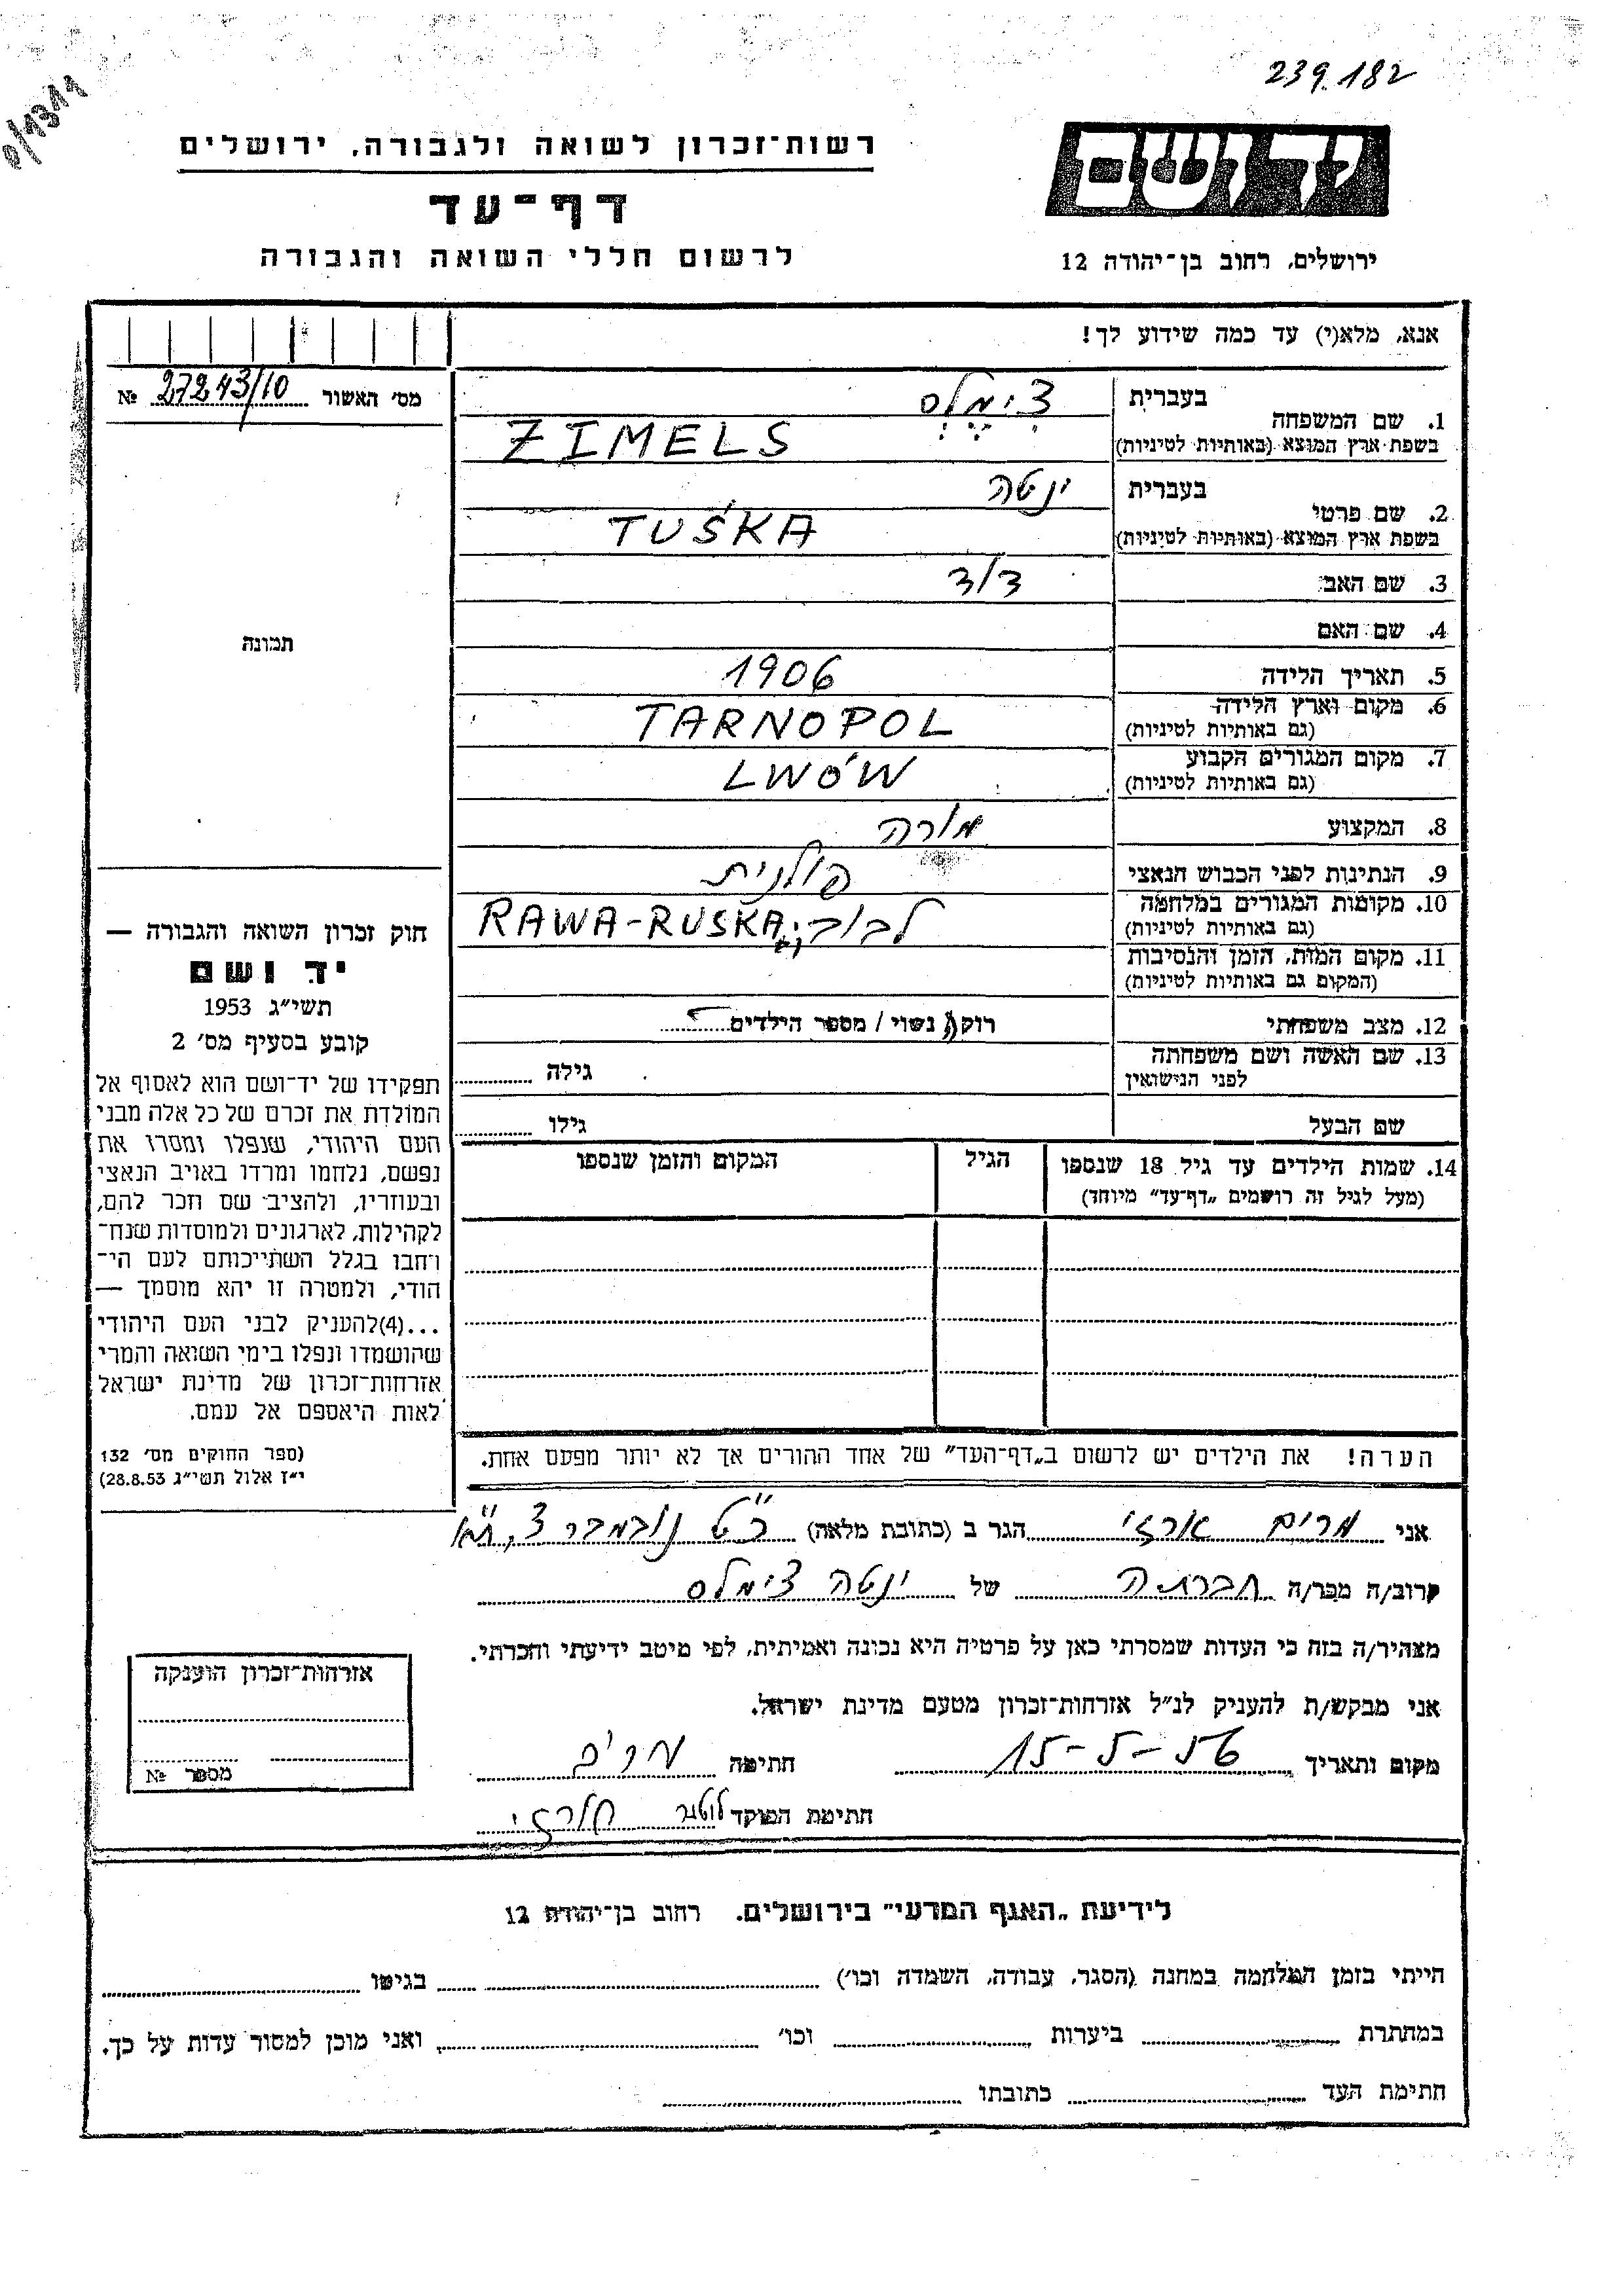 239.182
יד ושם
רשות־זכרון לשואה ולגבורה, ירושלים
דף־עד
לרשום חללי השואה והגבורה
ירושלים, רחוב בן־יהודה 12
אנא, מלא(י) עד כמה שידוע לך!
מס׳ האשור 27243/10 №
1. שם המשפחה בעברית צימלס
בשפת ארץ המוצא (באותיות לטיניות) ZIMELS
2. שם פרטי בעברית ינטה
בשפת ארץ המוצא (באותיות לטיניות) TUŚKA
3. שם האב דוד
4. שם האם
תמונה
5. תאריך הלידה 1906
6. מקום וארץ הלידה TARNOPOL
(גם באותיות לטיניות)
7. מקום המגורים הקבוע LWÓW
(גם באותיות לטיניות)
8. המקצוע מורה
9. הנתינות לפני הכבוש הנאצי פולנית
10. מקומות המגורים במלחמה לבוב; RAWA-RUSKA
(גם באותיות לטיניות)
11. מקום המות, הזמן והנסיבות
(המקום גם באותיות לטיניות)
12. מצב משפחתי רוק/ נשוי / מספר הילדים
13. שם האשה ושם משפחתה
לפני הנישואין גילה
שם הבעל גילו
14. שמות הילדים עד גיל 18 שנספו הגיל המקום והזמן שנספו
(מעל לגיל זה רושמים „דף־עד” מיוחד)
הערה! את הילדים יש לרשום ב„דף־העד” של אחד ההורים אך לא יותר מפעם אחת.
חוק זכרון השואה והגבורה —
יד ושם
תשי״ג 1953
קובע בסעיף מס׳ 2
תפקידו של יד־ושם הוא לאסוף אל
המולדת את זכרם של כל אלה מבני
העם היהודי, שנפלו ומסרו את
נפשם, נלחמו ומרדו באויב הנאצי
ובעוזריו, ולהציב שם וזכר להם,
לקהילות, לארגונים ולמוסדות שנח־
רבו בגלל השתייכותם לעם הי־
הודי, ולמטרה זו יהא מוסמך —
...(4)להעניק לבני העם היהודי
שהושמדו ונפלו בימי השואה והמרי
אזרחות־זכרון של מדינת ישראל
לאות היאספם אל עמם.
(ספר החוקים מס׳ 132
י״ז אלול תשי״ג 28.8.53)
אני מרים ארזי הגר ב (כתובת מלאה) כ״ט נובמבר 3, ת״א
קרוב/ה מכר/ה חברתה של ינטה צימלס
מצהיר/ה בזה כי העדות שמסרתי כאן על פרטיה היא נכונה ואמיתית, לפי מיטב ידיעתי והכרתי.
אני מבקש/ת להעניק לנ״ל אזרחות־זכרון מטעם מדינת ישראל.
מקום ותאריך 15-5-56 חתימה מרים
חתימת הפוקד
אזרחות־זכרון הוענקה
מספר №
לידיעת „האגף המדעי” בירושלים. רחוב בן־יהודה 12
הייתי בזמן המלחמה במחנה (הסגר, עבודה, השמדה וכו׳) בגיטו
במחתרת ביערות וכו׳ ואני מוכן למסור עדות על כך.
חתימת העד כתובתו